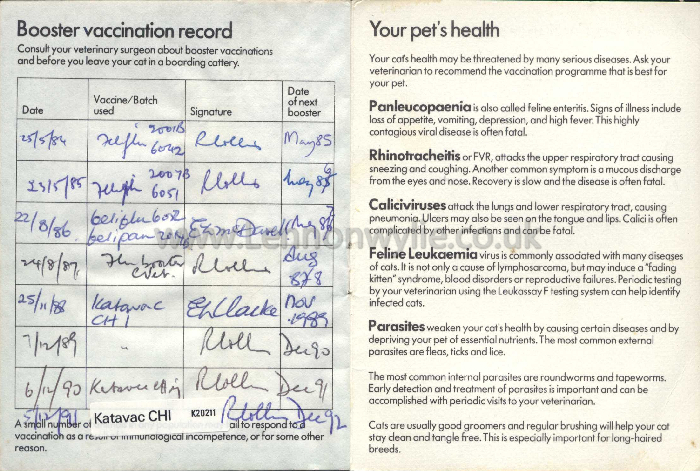 Booster vaccination record
Consult your veterinary surgeon about booster vaccinations
and before you leave your cat in a boarding cattery.
Date
Vaccine/Batch
used
Signature
Date
of next
booster
25/5/84
2001B
6042
May 85
23/5/85
2007B
6051
22/8/86
24/8/87
Aug
25/11/88
Katavac
CHI
Clarke
Nov
1989
7/12/89
"
Dec 90
6/12/90
Katavac CHI
Dec 91
5/12/91
Katavac CHI
K20211
Dec 92
A small number of
ail to respond to a
vaccination as a result of immunological incompetence, or for some other
reason.
Your pet's health
Your cat's health may be threatened by many serious diseases. Ask your
veterinarian to recommend the vaccination programme that is best for
your pet.
Panleucopaenia is also called feline enteritis. Signs of illness include
loss of appetite, vomiting, depression, and high fever. This highly
contagious viral disease is often fatal.
Rhinotracheitis or FVR, attacks the upper respiratory tract causing
sneezing and coughing. Another common symptom is a mucous discharge
from the eyes and nose. Recovery is slow and the disease is often fatal.
Caliciviruses attack the lungs and lower respiratory tract, causing
pneumonia. Ulcers may also be seen on the tongue and lips. Calici is often
complicated by other infections and can be fatal.
www.Lennonwylie.co.uk
Feline Leukaemia virus is commonly associated with many diseases
of cats. It is not only a cause of lymphosarcoma, but may induce a "fading
kitten" syndrome, blood disorders or reproductive failures. Periodic testing
by your veterinarian using the Leukassay F testing system can help identify
infected cats.
Parasites weaken your cat's health by causing certain diseases and by
depriving your pet of essential nutrients. The most common external
parasites are fleas, ticks and lice.
The most common internal parasites are roundworms and tapeworms.
Early detection and treatment of parasites is important and can be
accomplished with periodic visits to your veterinarian.
Cats are usually good groomers and regular brushing will help your cat
stay clean and tangle free. This is especially important for long-haired
breeds.